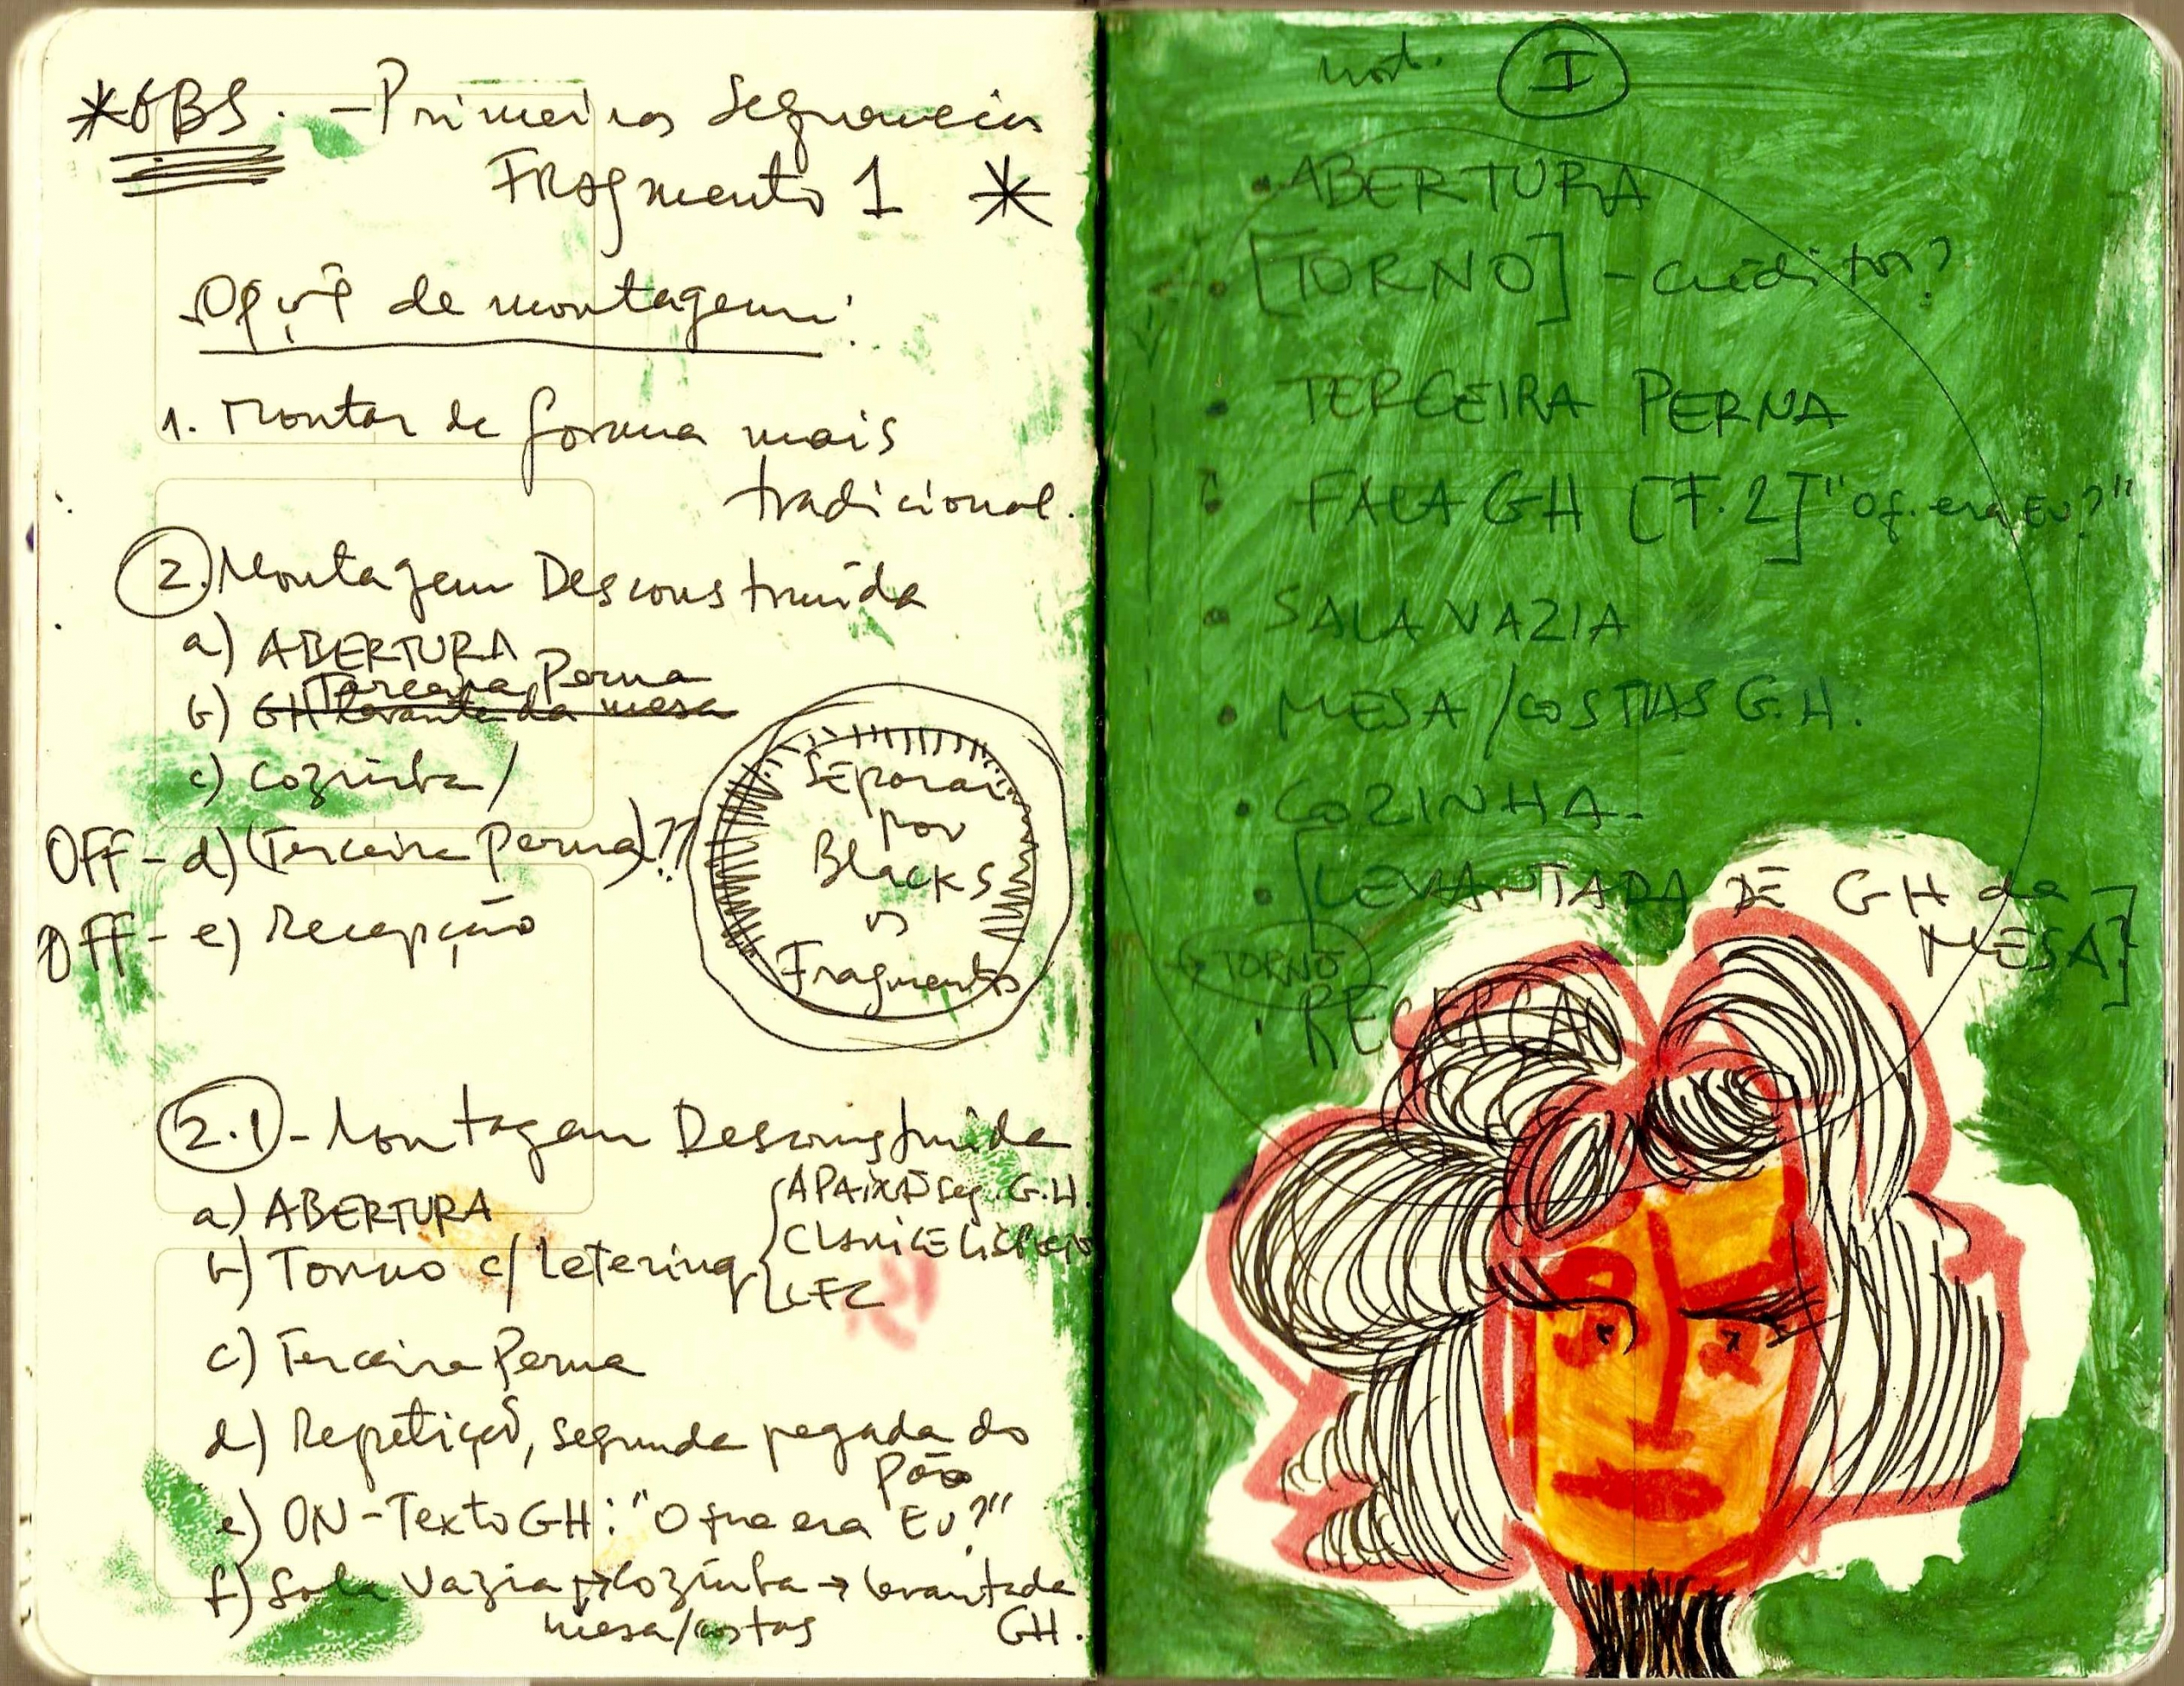 *OBS. - Primeiras Sequencias
Fragmento 1 *
de montagem:
1. Montar de forma mais
tradicional.
2. Montagem Desconstruída
a) ABERTURA
Terceira Perna
b) GH levanta da mesa
c) Cozinha/
OFF - d) (Terceira Perna)??
OFF - e) Recepção
Separar
por
Blacks
os
Fragmentos
2.1 - Montagem Desconstruída
a) ABERTURA
b) Torno c/ Letering
APAIXÃO seg. G.H.
CLARICE LISPECTO
LFC
c) Terceira Perna
d) Repetição, segunda pegada do
pão
e) ON - Texto GH: "O que era EU?"
f) Sala Vazia → Cozinha → levantada
mesa/costas GH.
I
• ABERTURA
• [TORNO] - créditos?
• TERCEIRA PERNA
• FALA GH [F.2] "Oq. era EU?"
• SALA VAZIA
• MESA / COSTAS G.H.
• COZINHA.
• [LEVANTADA DE GH da
MESA?]
→ TORNO
• RECEPÇÃO